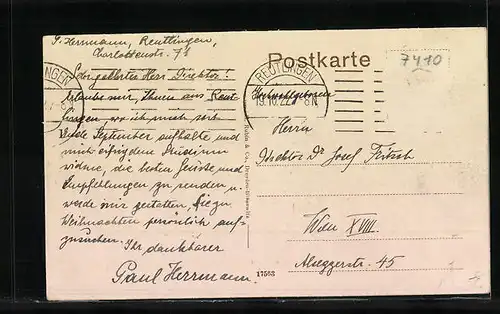 P. Herrmann, Reutlingen,
Charlottenstr. 7I
Postkarte
7410
REUTLINGEN
19.10.22.7-8N
Sehr geehrter Herr Direktor!
Erlaube mir, Ihnen aus Reut-
lingen, wo ich mich seit
Ende September aufhalte und
mich eifrig dem Studium
widme, die besten Grüsse und
Empfehlungen zu senden u.
werde mir gestatten, Sie zu
Weihnachten persönlich auf-
zusuchen. Ihr dankbarer
Paul Herrmann.
Hochwohlgeboren
Herrn
Direktor Dr Josef Fritsch
Wien XVIII.
Alseggerstr. 45
17553